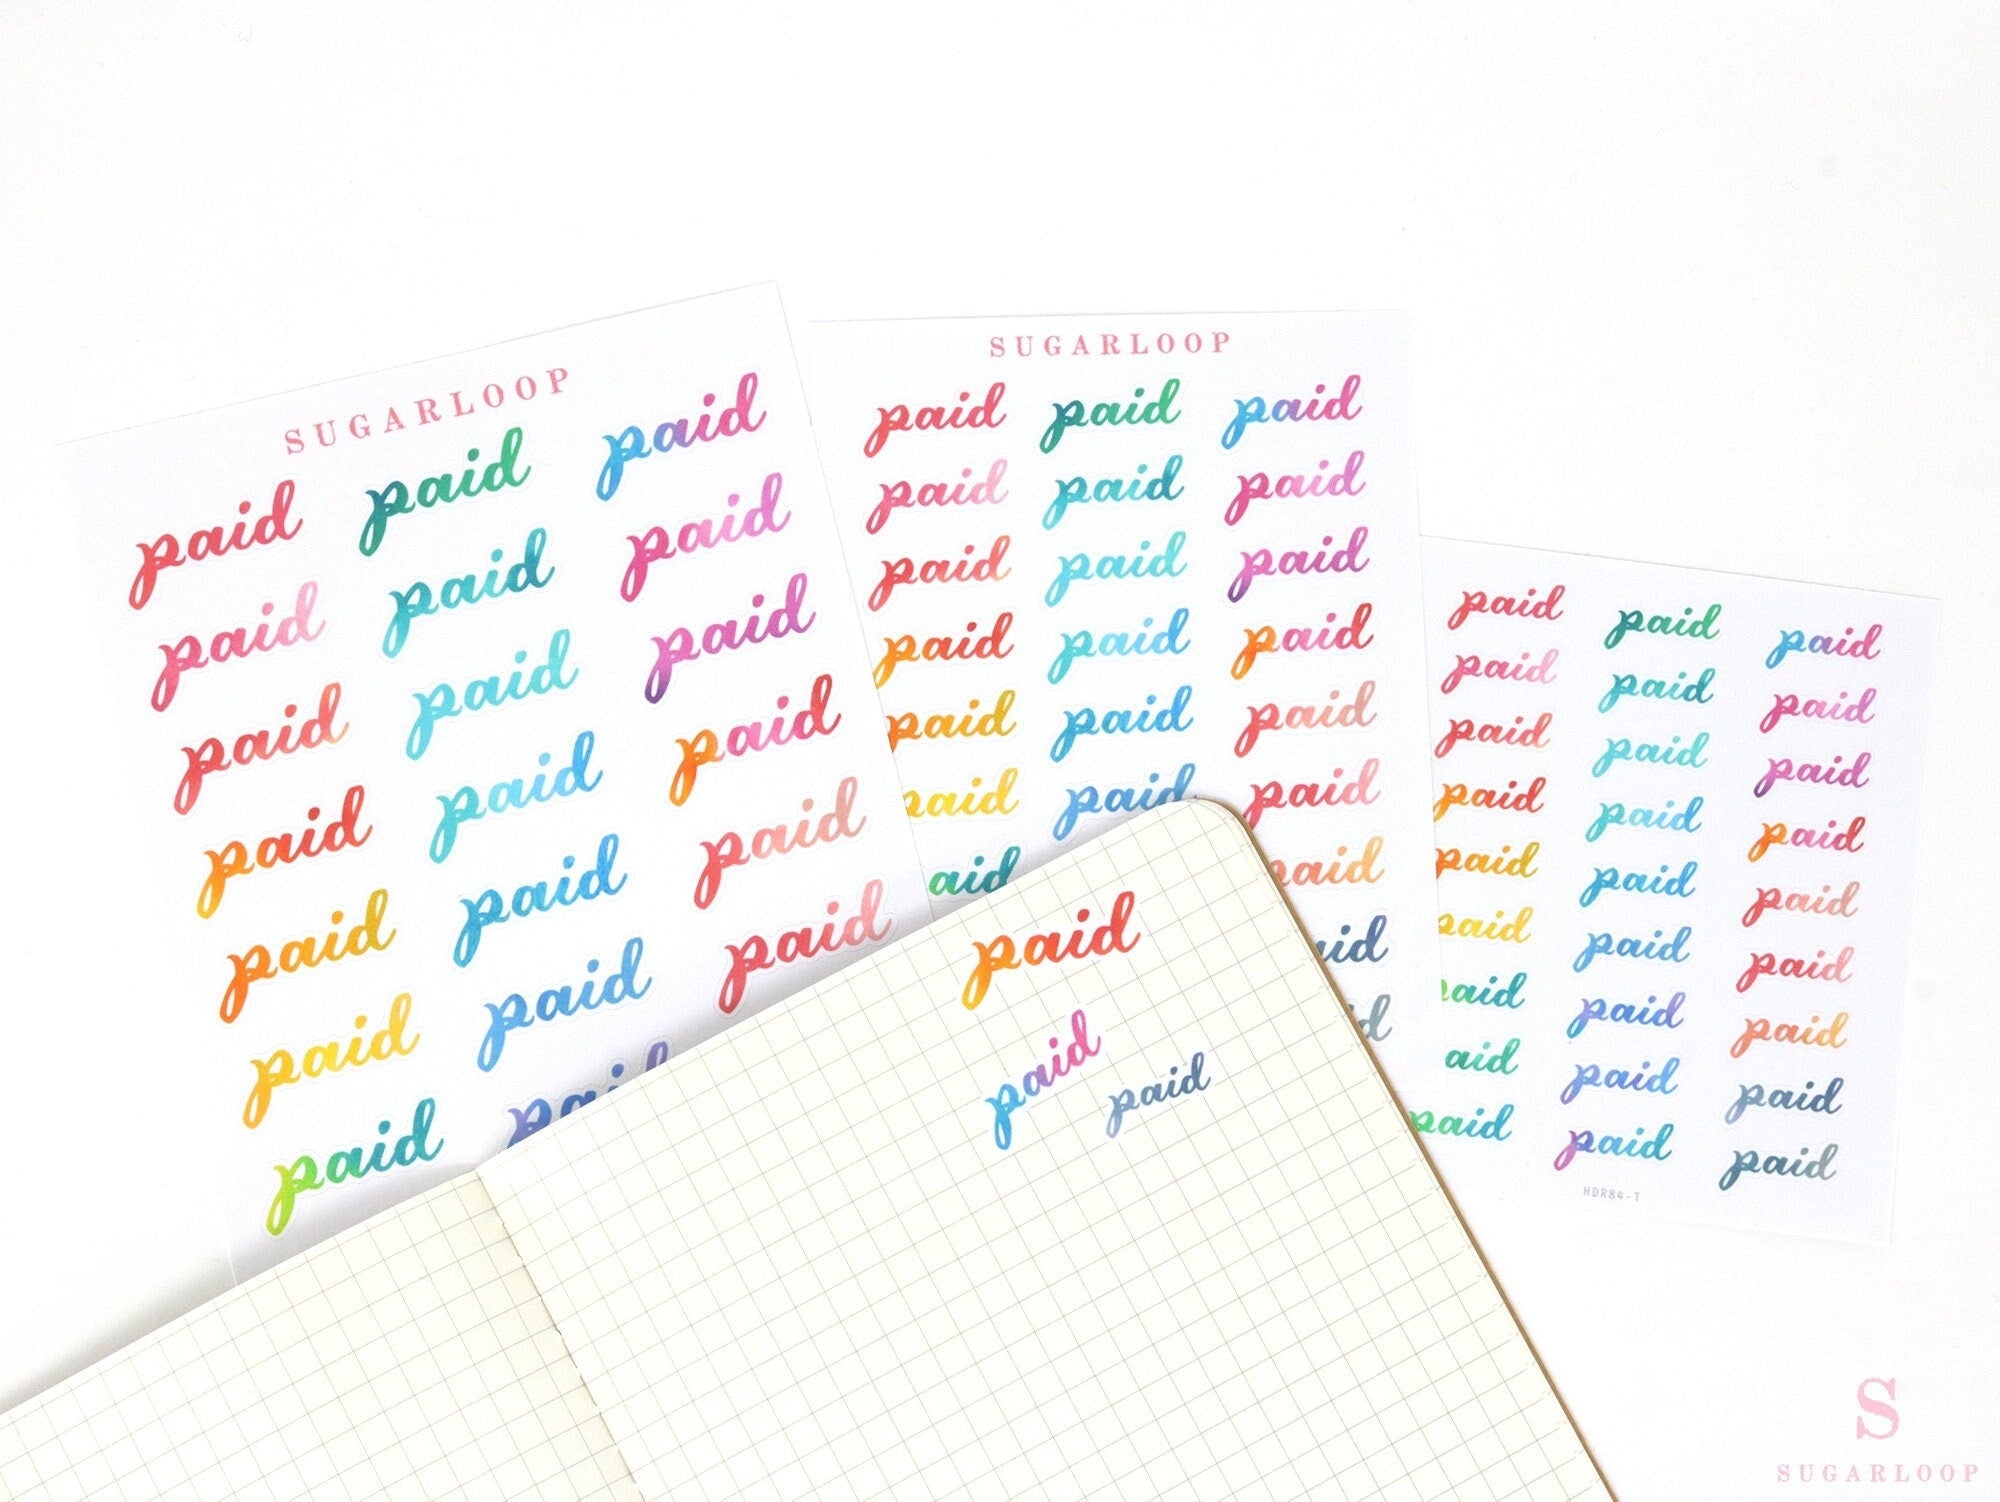 SUGARLOOP
paid paid paid
paid paid paid
paid paid paid
paid paid paid
paid paid paid
paid paid paid
paid pai
SUGARLOOP
paid paid paid
paid paid paid
paid paid paid
paid paid paid
paid paid paid
paid paid paid
aid paid
aid
d
paid paid paid
paid paid paid
paid paid paid
paid paid paid
paid paid paid
paid paid paid
paid paid paid
aid paid paid
paid paid paid
HDR84-T
paid
paid paid
S
SUGARLOOP